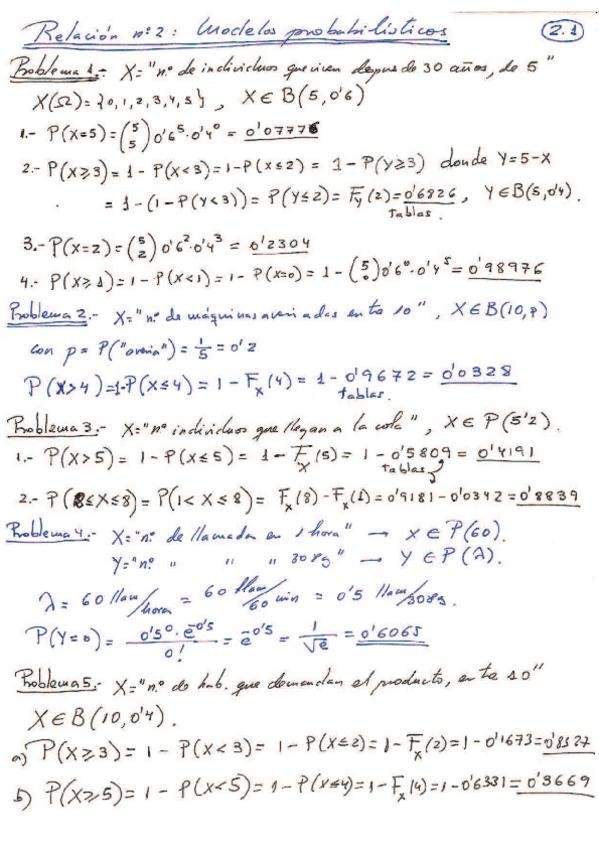 Relación nº 2: Modelos probabilísticos 2.1
Problema 1.- X="nº de individuos que viven después de 30 años, de 5"
X(Ω)={0,1,2,3,4,5}, X∈B(5,0'6)
1.- P(X=5)=(5 5)0'6^5·0'4^0=0'07776
2.- P(X≥3)=1-P(X<3)=1-P(X≤2)=1-P(Y≥3) donde Y=5-X
=1-(1-P(Y<3))=P(Y≤2)=F_Y(2)=0'6826, Y∈B(5,0'4).
tablas.
3.- P(X=2)=(5 2)0'6^2·0'4^3=0'2304
4.- P(X≥1)=1-P(X<1)=1-P(X=0)=1-(5 0)0'6^0·0'4^5=0'98976
Problema 2.- X="nº de máquinas averiadas entre 10", X∈B(10,p)
con p=P("avería")=1/5=0'2
P(X>4)=1-P(X≤4)=1-F_X(4)=1-0'9672=0'0328
tablas.
Problema 3.- X="nº individuos que llegan a la cola", X∈P(5'2).
1.- P(X>5)=1-P(X≤5)=1-F_X(5)=1-0'5809=0'4191
tablas
2.- P(2≤X≤8)=P(1<X≤8)=F_X(8)-F_X(1)=0'9181-0'0342=0'8839
Problema 4.- X="nº de llamadas en 1 hora" → X∈P(60).
Y="nº " " " 30sg" → Y∈P(λ).
λ=60 llam/hora=60 llam/60 min=0'5 llam/30sg.
P(Y=0)=0'5^0·e^-0'5/0!=e^-0'5=1/√e=0'6065
Problema 5.- X="nº de hab. que demandan el producto, entre 10"
X∈B(10,0'4).
a) P(X≥3)=1-P(X<3)=1-P(X≤2)=1-F_X(2)=1-0'1673=0'8327
b) P(X≥5)=1-P(X<5)=1-P(X≤4)=1-F_X(4)=1-0'6331=0'3669